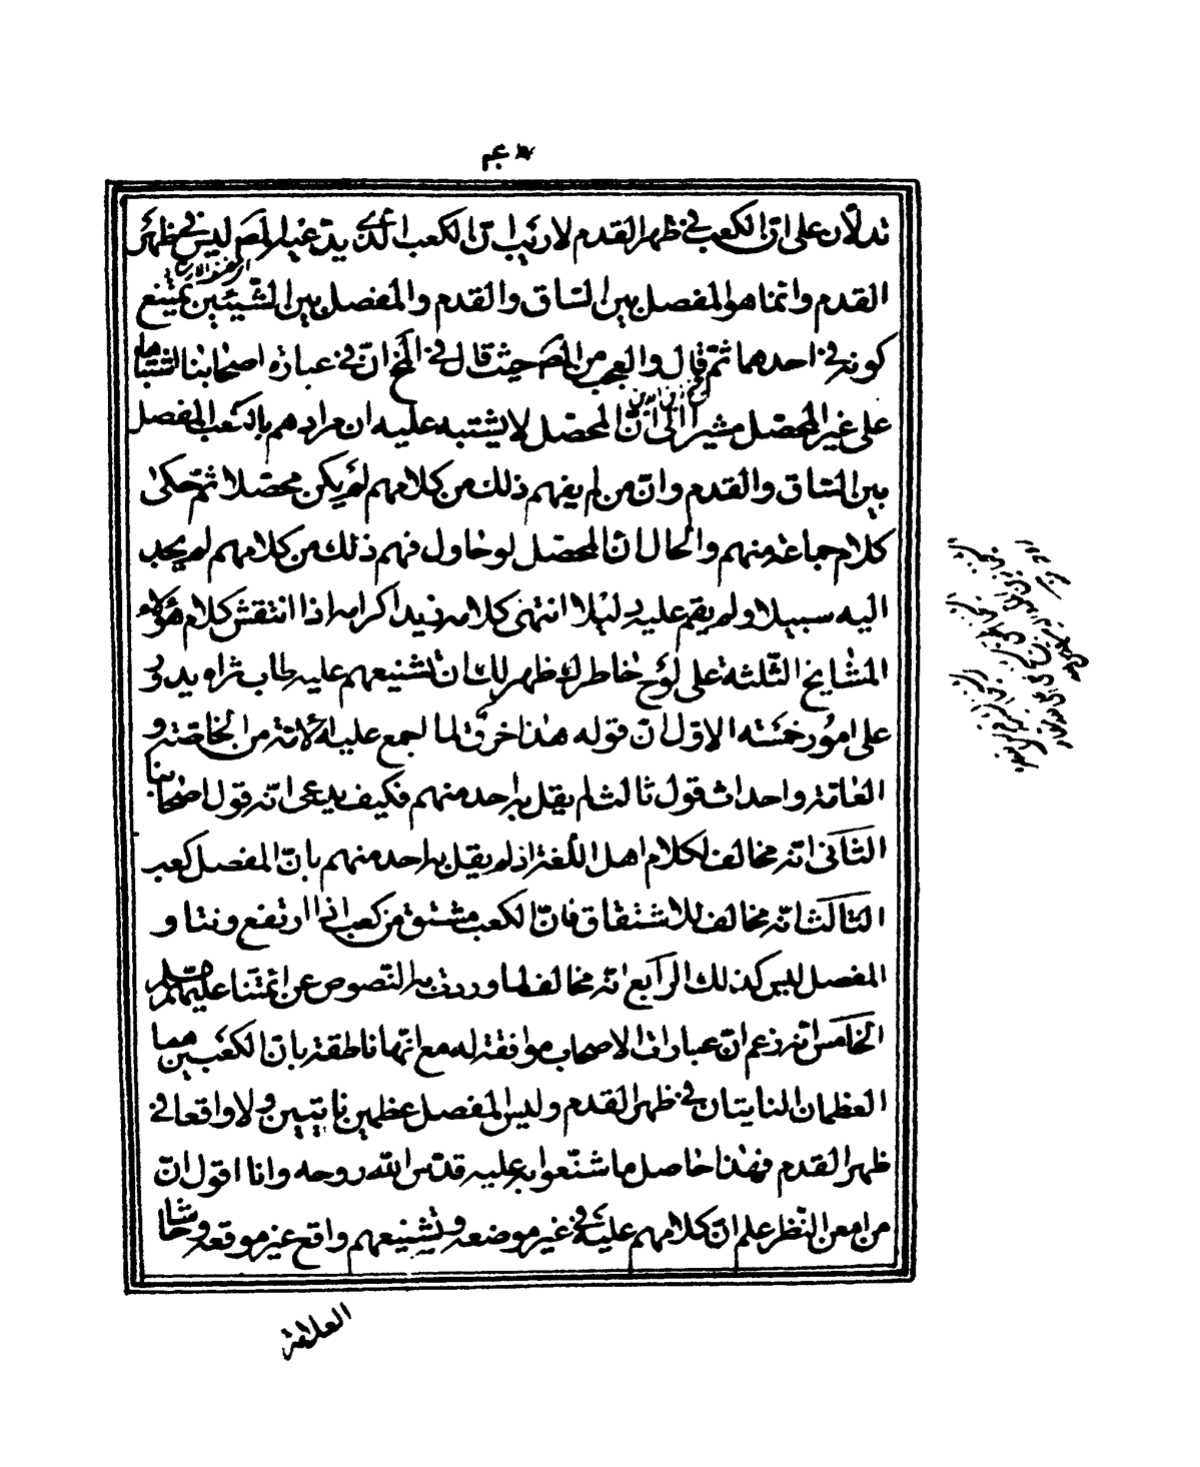 تدلّان على انّ الكعب فى ظهر القدم لا ريب انّ الكعب الّذى يدّعيه المص ليس فى ظهر
القدم وانّما هو المفصل بين السّاق والقدم والمفصل بين الشّيئين يمتنع
كونه فى احدهما ثمّ قال والعجب من المص حيث قال فى المخ انّ فى عبارة اصحابنا اشتباها
على غير المحصّل مشيرا الى انّ المحصّل لا يشتبه عليه ان مرادهم بالكعب المفصل
بين السّاق والقدم وانّ من لم يفهم ذلك من كلامهم لم يكن محصّلا ثمّ حكى
كلام جماعة منهم والحال انّ المحصّل لو حاول فهم ذلك من كلامهم لم يجد
اليه سبيلا ولم يقم عليه دليلا انتهى كلامه زيد اكرامه اذا انتقش كلام هؤلاء
المشايخ الثّلثة على لوح خاطرك ظهر لك ان تشنيعهم عليه طاب ثراه يدور
على امور خمسة الاوّل ان قوله هذا خرق لما اجمع عليه الامّة من الخاصّة و
العامّة واحداث قول ثالث لم يقل به احد منهم فكيف يدعى انّه قول اصحابنا
الثّانى انّه مخالف لكلام اهل اللّغة اذ لم يقل به احد منهم بانّ المفصل كعب
الثّالث انّه مخالف للاشتقاق فانّ الكعب مشتق من كعب اذا ارتفع ونتا و
المفصل ليس كذلك الرّابع انّه مخالف لما وردت به النّصوص عن ائمّتنا عليهم السلم
الخامس انّه زعم انّ عبارات الاصحاب موافقة له مع انّها ناطقة بانّ الكعبين هما
العظمان الناتيان فى ظهر القدم وليس المفصل عظمين ناتيين ولا واقعا فى
ظهر القدم فهذا حاصل ما شنّعوا به عليه قدّس اللّه روحه وانا اقول انّ
من امعن النّظر علم انّ كلامهم عليه فى غير موضعه وتشنيعهم واقع غير موقعه وحاشا
العلامة